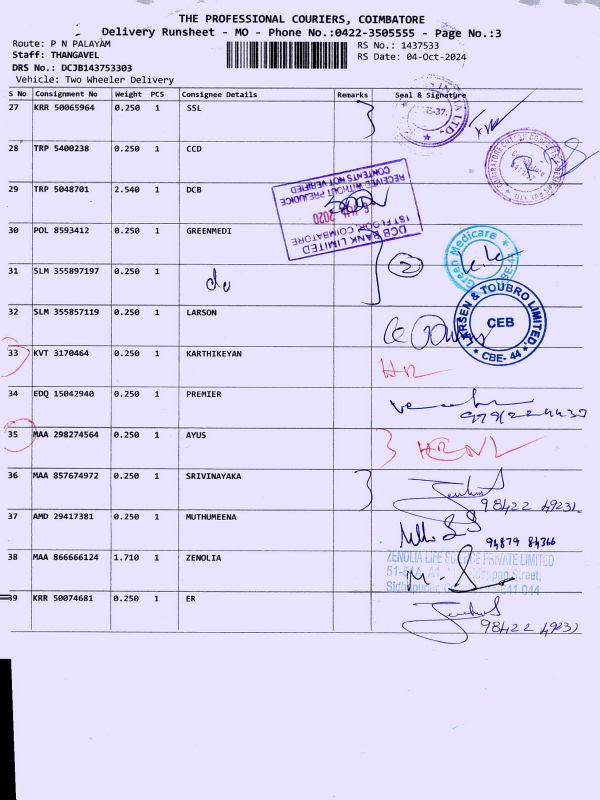 THE PROFESSIONAL COURIERS, COIMBATORE
Delivery Runsheet - MO - Phone No.:0422-3505555 - Page No.:3
Route: P N PALAYAM
RS No.: 1437533
Staff: THANGAVEL
RS Date: 04-Oct-2024
DRS No.: DCJB143753303
Vehicle: Two Wheeler Delivery
S No Consignment No Weight PCS Consignee Details Remarks Seal & Signature
27 KRR 50065964 0.250 1 SSL
28 TRP 5400238 0.250 1 CCD
29 TRP 5048701 2.540 1 DCB
RECEIVED WITHOUT PREJUDICE
CONTENTS NOT VERIFIED
DCB BANK LIMITED
1ST FLOOR, COIMBATORE
30 POL 8593412 0.250 1 GREENMEDI
Green Medicare
31 SLM 355897197 0.250 1 do 2
32 SLM 355857119 0.250 1 LARSON
LARSEN & TOUBRO LIMITED.
CEB
CBE- 44
33 KVT 3170464 0.250 1 KARTHIKEYAN
34 EDQ 15042940 0.250 1 PREMIER
35 MAA 298274564 0.250 1 AYUS
36 MAA 857674972 0.250 1 SRIVINAYAKA
98422 49232
37 AMD 29417381 0.250 1 MUTHUMEENA
94879 84366
38 MAA 866666124 1.710 1 ZENOLIA
ZENOLIA LIFE SCIENCE PRIVATE LIMITED
39 KRR 50074681 0.250 1 ER
98422 49232